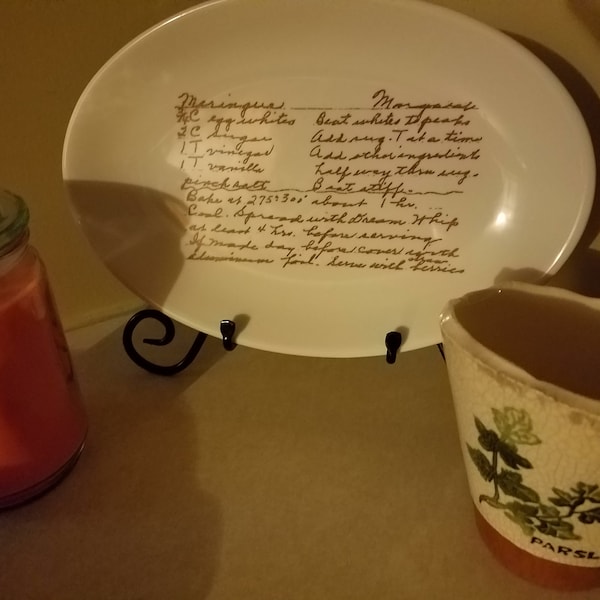 Meringue Margaret
C egg whites Beat whites to peaks
2 C sugar Add sug. T at a time
1 T vinegar Add other ingredients
1 T vanilla half way thru sug.
pinch salt Beat stiff.
Bake at 275°-300° about 1 hr.
Cool. Spread with Dream Whip
at least 4 hrs. before serving
If made day before cover with
aluminum foil. Serve with berries
PARSL